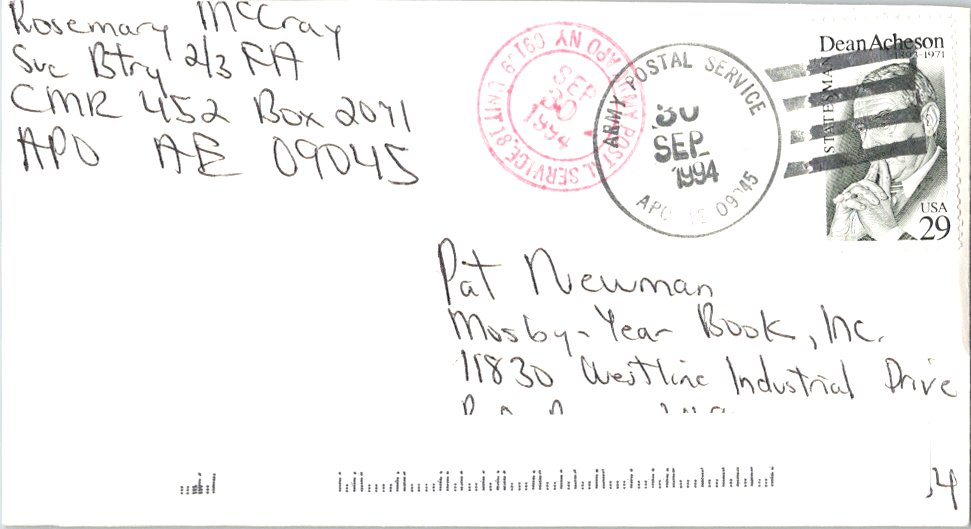 Rosemary McCray
Svc Btry 2/3 FA
CMR 452 Box 2071
APO AE 09045
ARMY POSTAL SERVICE
SEP
30
1994
APO NY 09159
ARMY POSTAL SERVICE
30
SEP
1994
APO AE 09045
Dean Acheson
1893-1971
STATESMAN
USA
29
Pat Newman
Mosby-Year Book, Inc.
11830 Westline Industrial Drive